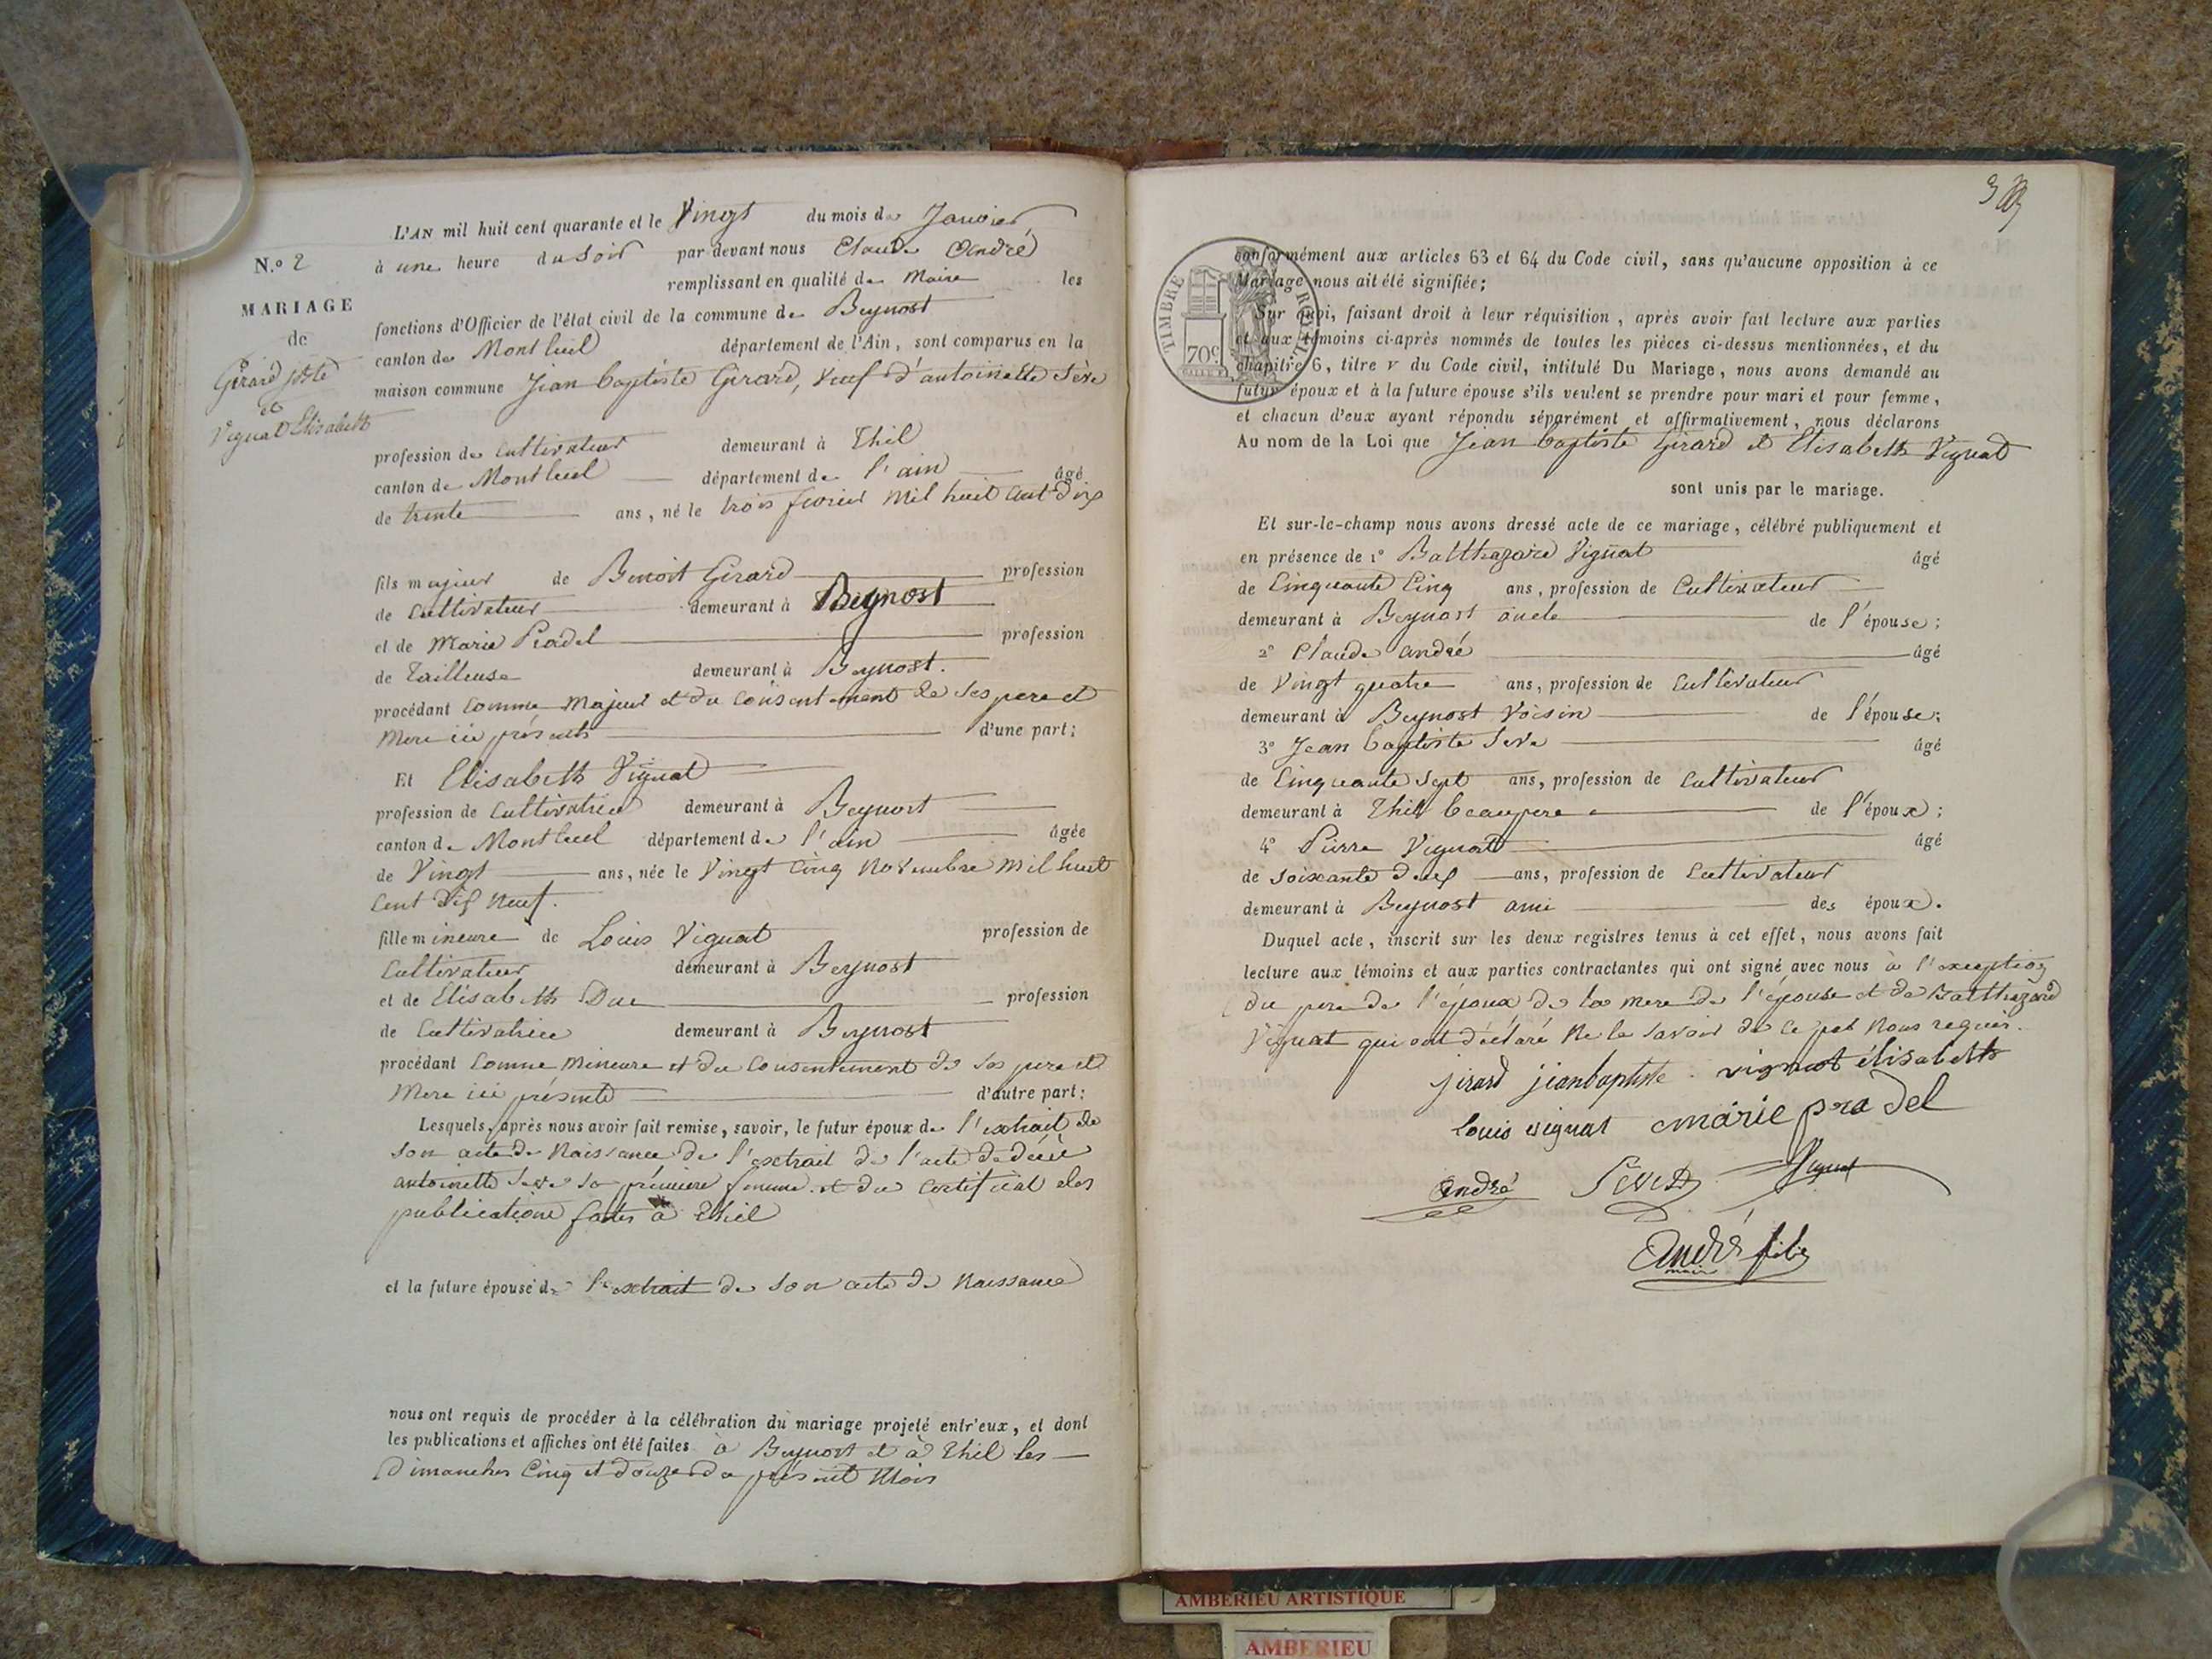 L'AN mil huit cent quarante et le Vingt du mois de Janvier
N.o 2
à une heure du Soir par devant nous Claude André
remplissant en qualité de Maire les
MARIAGE
fonctions d'Officier de l'état civil de la commune de Beynost
de
canton de Montluel département de l'Ain, sont comparus en la
Girard jn bte
maison commune Jean baptiste Girard, Veuf d'antoinette Sève
et
Vignat Elisabeth
profession de Cultivateur demeurant à Thil
canton de Montluel département de l'ain âgé
de trente ans, né le trois fevrier mil huit cent dix
fils majeur de Benoit Girard profession
de Cultivateur demeurant à Beynost
et de Marie Pradel profession
de Tailleuse demeurant à Beynost.
procédant Comme Majeur et du Consentement de Ses pere et
Mere ici présents d'une part;
Et Elisabeth Vignat
profession de Cultivatrice demeurant à Beynost
canton de Montluel département de l'ain âgée
de Vingt ans, née le Vingt Cinq Novembre Mil huit
Cent dix Neuf.
fille mineure de Louis Vignat profession de
Cultivateur demeurant à Beynost
et de Elisabeth Duc profession
de Cultivatrice demeurant à Beynost
procédant Comme Mineure et du Consentement de Ses pere et
Mere ici présents d'autre part;
Lesquels, après nous avoir fait remise, savoir, le futur époux de l'extrait de
Son acte de Naissance de l'extrait de l'acte de décès
antoinette Seve Sa première femme. et du Certificat des
publications faites à Thil
et la future épouse de l'extrait de Son acte de Naissance
nous ont requis de procéder à la célébration du mariage projeté entr'eux, et dont
les publications et affiches ont été faites à Beynost et à Thil les
Dimanches Cinq et douze du présent Mois
3
conformément aux articles 63 et 64 du Code civil, sans qu'aucune opposition à ce
Mariage nous ait été signifiée;
TIMBRE ROYAL
70c
Sur quoi, faisant droit à leur réquisition, après avoir fait lecture aux parties
et aux témoins ci-après nommés de toutes les pièces ci-dessus mentionnées, et du
chapitre 6, titre V du Code civil, intitulé Du Mariage, nous avons demandé au
futur époux et à la future épouse s'ils veulent se prendre pour mari et pour femme,
et chacun d'eux ayant répondu séparément et affirmativement, nous déclarons
Au nom de la Loi que Jean baptiste Girard et Elisabeth Vignat
sont unis par le mariage.
Et sur-le-champ nous avons dressé acte de ce mariage, célébré publiquement et
en présence de 1° Balthazard Vignat âgé
de Cinquante Cinq ans, profession de Cultivateur
demeurant à Beynost oncle de l'épouse;
2° Claude André âgé
de Vingt quatre ans, profession de Cultivateur
demeurant à Beynost Voisin de l'épouse;
3° Jean baptiste Seve âgé
de Cinquante Sept ans, profession de Cultivateur
demeurant à Thil beaupere de l'époux;
4° Pierre Vignat âgé
de Soixante deux ans, profession de Cultivateur
demeurant à Beynost ami des époux.
Duquel acte, inscrit sur les deux registres tenus à cet effet, nous avons fait
lecture aux témoins et aux parties contractantes qui ont signé avec nous à l'exception
du pere de l'époux de la mere de l'épouse et de Balthazard
Vignat qui ont déclaré Ne le Savoir de Ce par Nous requis.
jirard jeanbaptiste vignat élisabeth
louis vignat marie pradel
André Seve Vignat
André fils
maire
AMBERIEU ARTISTIQUE
AMBERIEU